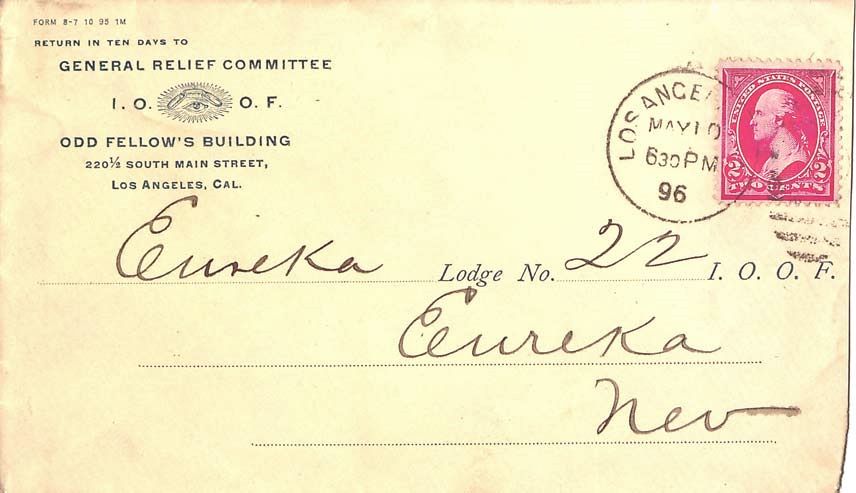 FORM 8-7 10 95 1M
RETURN IN TEN DAYS TO
GENERAL RELIEF COMMITTEE
I. O. O. F.
ODD FELLOW'S BUILDING
220½ SOUTH MAIN STREET,
LOS ANGELES, CAL.
LOS ANGE
MAY 10
630 PM
96
UNITED STATES POSTAGE
2 2
TWO CENTS
Eureka Lodge No. 22 I. O. O. F.
Eureka
Nev